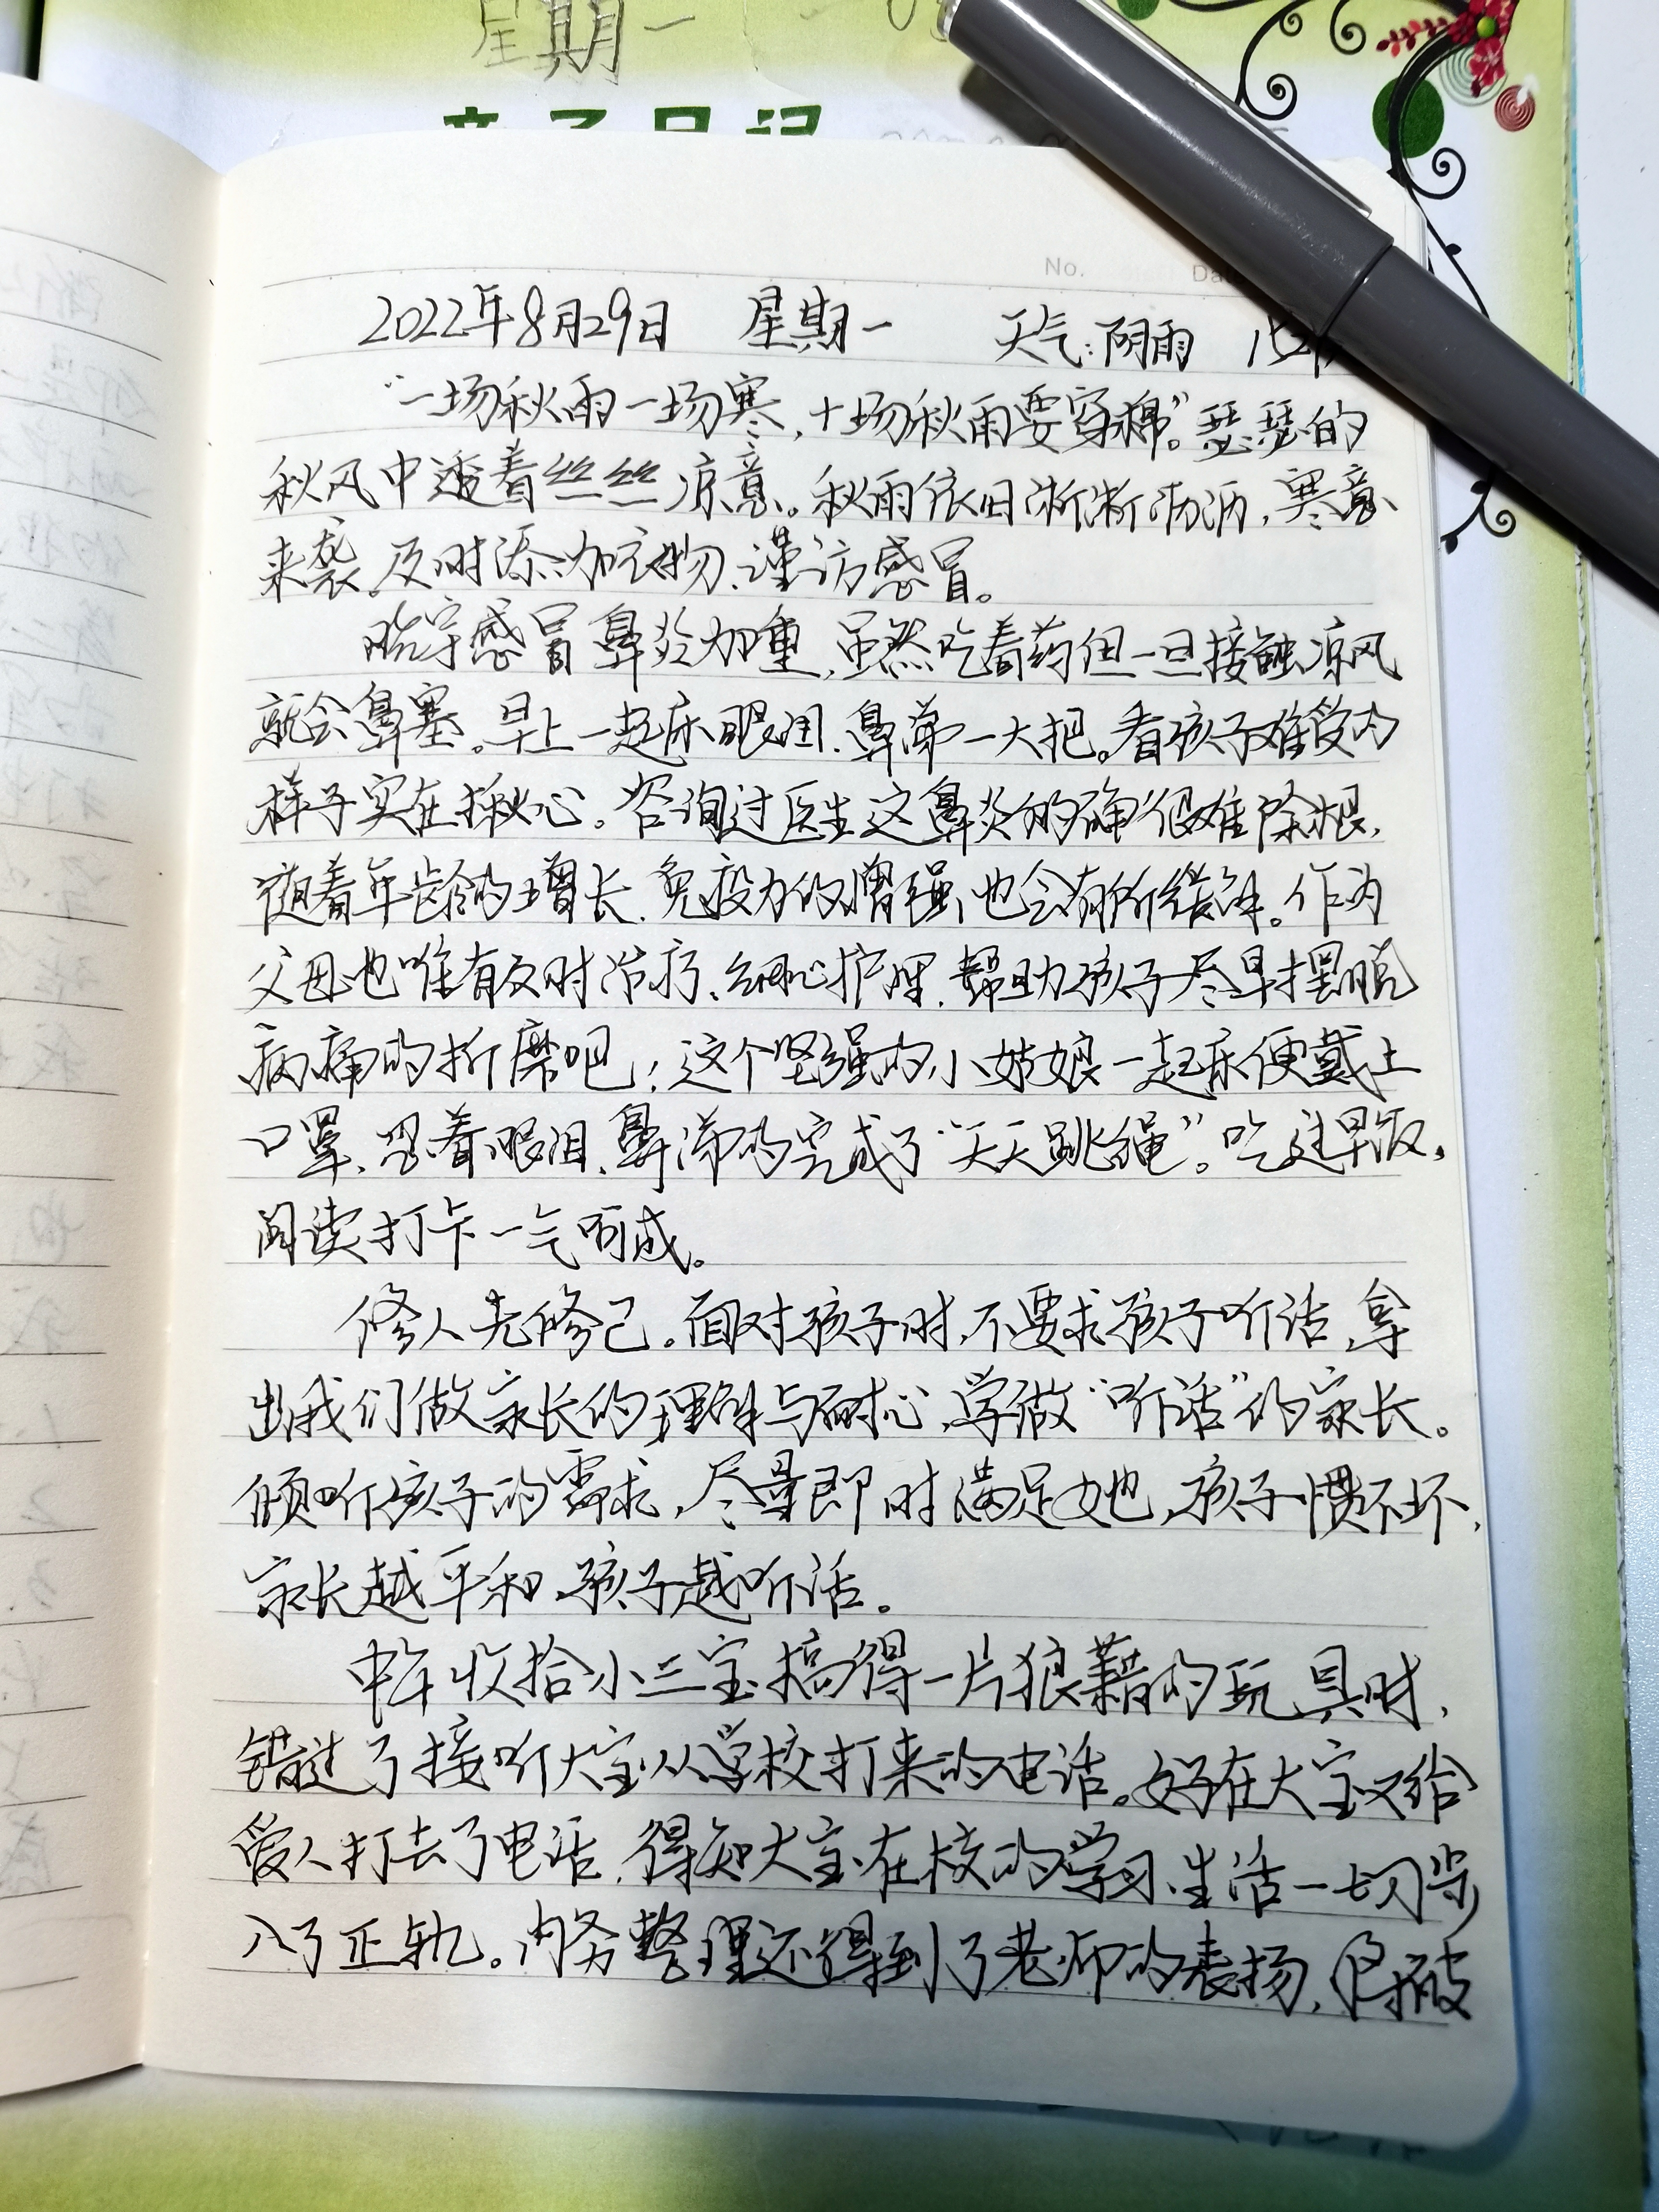 星期一
亲子日记
No.
2022年8月29日 星期一 天气:阴雨
“一场秋雨一场寒,十场秋雨要穿棉”。瑟瑟的
秋风中透着丝丝凉意。秋雨依旧淅淅沥沥,寒意
来袭。及时添加衣物、谨访感冒。
感冒鼻炎加重,虽然吃着药但一旦接触凉风
就会鼻塞。早上一起床眼泪、鼻涕一大把。看孩子难受的
样子实在揪心。咨询过医生这鼻炎的确很难除根,
随着年龄的增长、免疫力的增强,也会有所缓解。作为
父母也唯有及时治疗、细心护理,帮助孩子尽早摆脱
病痛的折磨吧!这个坚强的小姑娘一起床便戴上
口罩,忍着眼泪、鼻涕的完成了“天天跳绳”。吃过早饭,
阅读打卡一气呵成。
修人先修己。面对孩子时,不要求孩子听话,拿
出我们做家长的理解与耐心,学做“听话”的家长。
倾听孩子的需求,尽量即时满足她,孩子惯不坏,
家长越平和,孩子越听话。
中午收拾小三宝搞得一片狼藉的玩具时,
错过了接听大宝从学校打来的电话。好在大宝又给
爱人打去了电话,得知大宝在校的学习、生活一切步
入了正轨。内务整理还得到了老师的表扬,